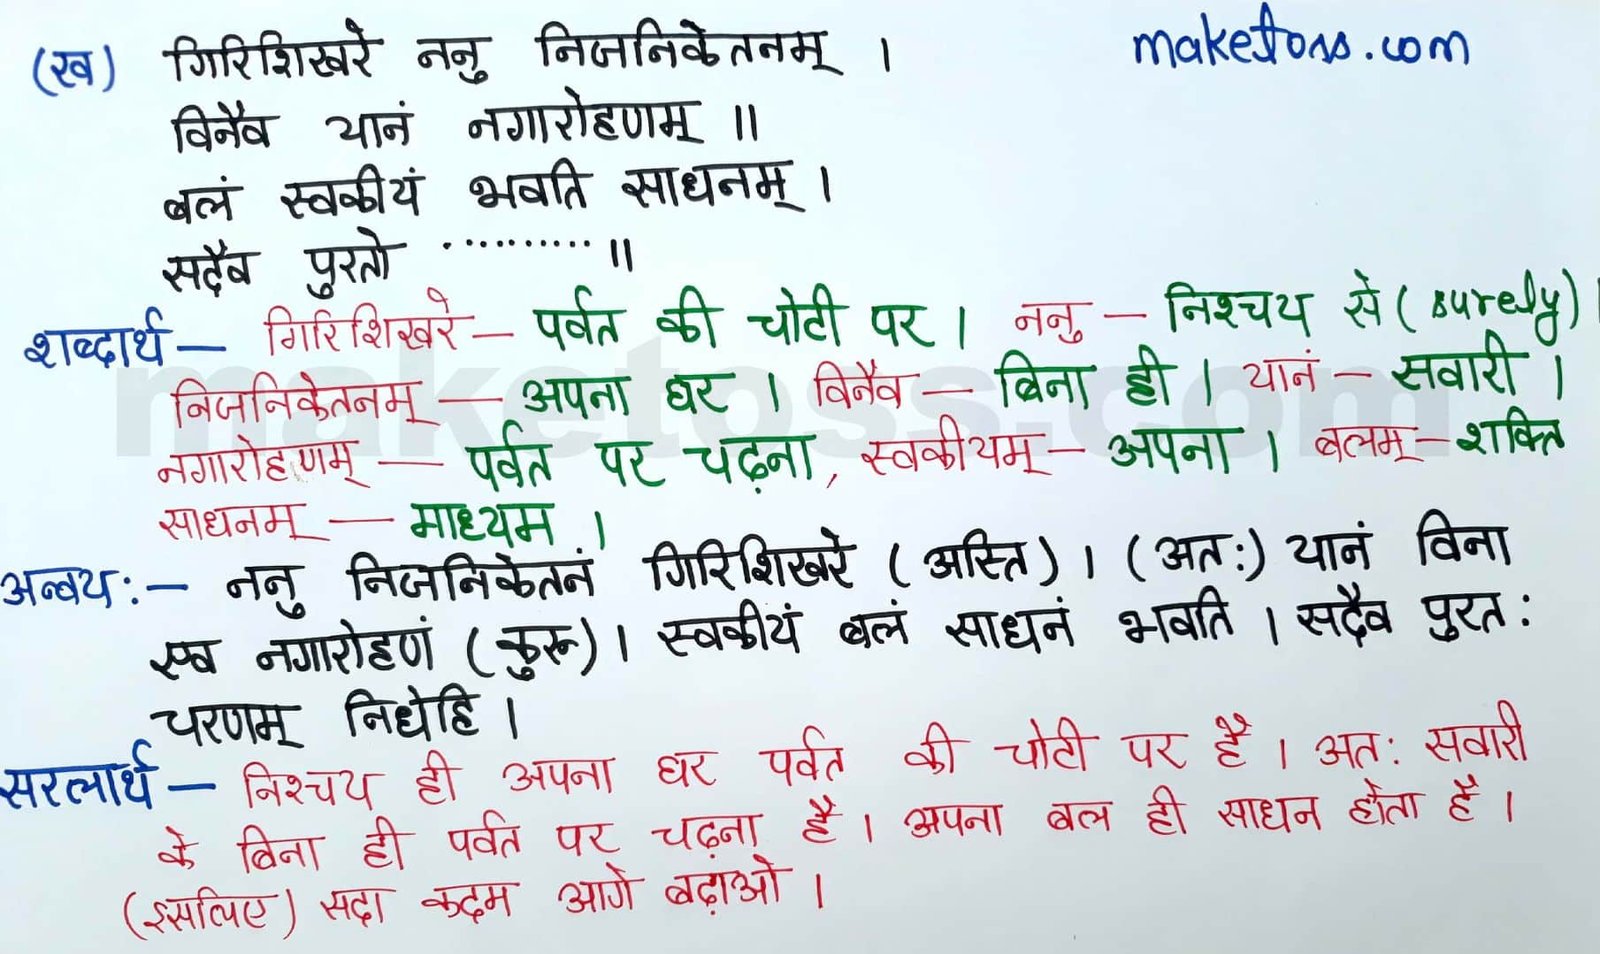 (ख) गिरिशिखरे ननु निजनिकेतनम् । maketoss.com
विनैव यानं नगारोहणम् ॥
बलं स्वकीयं भवति साधनम् ।
सदैव पुरतो .......... ॥
शब्दार्थ — गिरिशिखरे — पर्वत की चोटी पर । ननु — निश्चय से ( surely ) ।
निजनिकेतनम् — अपना घर । विनैव — बिना ही । यानं — सवारी ।
नगारोहणम् — पर्वत पर चढ़ना, स्वकीयम् — अपना । बलम् — शक्ति
साधनम् — माध्यम ।
अन्वय: — ननु निजनिकेतनं गिरिशिखरे ( अस्ति ) । ( अत: ) यानं विना
एव नगारोहणं ( कुरू ) । स्वकीयं बलं साधनं भवति । सदैव पुरत:
चरणम् निधेहि ।
सरलार्थ — निश्चय ही अपना घर पर्वत की चोटी पर है । अत: सवारी
के बिना ही पर्वत पर चढ़ना है । अपना बल ही साधन होता है ।
(इसलिए) सदा कदम आगे बढ़ाओ ।
maketoss.com